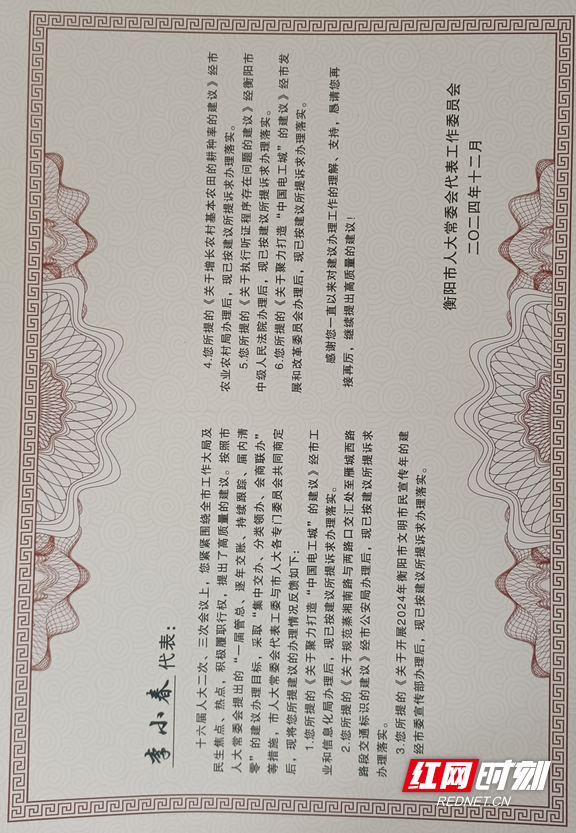 李小春 代表：
十六届人大二次、三次会议上，您紧紧围绕全市工作大局及
民生焦点、热点，积极履职行权，提出了高质量的建议。按照市
人大常委会提出的“一届管总、逐年交账、持续跟踪、届内清
零”的建议办理目标，采取“集中交办、分类领办、会商联办”
等措施，市人大常委会代表工委与市人大各专门委员会共同商定
后，现将您所提建议的办理情况反馈如下：
1.您所提的《关于聚力打造“中国电工城”的建议》经市工
业和信息化局办理后，现已按建议所提诉求办理落实。
2.您所提的《关于规范蒸湘南路与两路口交汇处至雁城西路
路段交通标识的建议》经市公安局办理后，现已按建议所提诉求
办理落实。
3.您所提的《关于开展2024年衡阳市文明市民宣传年的建
经市委宣传部办理后，现已按建议所提诉求办理落实。
4.您所提的《关于增长农村基本农田的耕种率的建议》经市
农业农村局办理后，现已按建议所提诉求办理落实。
5.您所提的《关于执行听证程序存在问题的建议》经衡阳市
中级人民法院办理后，现已按建议所提诉求办理落实。
6.您所提的《关于聚力打造“中国电工城”的建议》经市发
展和改革委员会办理后，现已按建议所提诉求办理落实。
感谢您一直以来对建议办理工作的理解、支持，恳请您再
接再厉，继续提出高质量的建议！
衡阳市人大常委会代表工作委员会
二〇二四年十二月
红网时刻
REDNET.CN